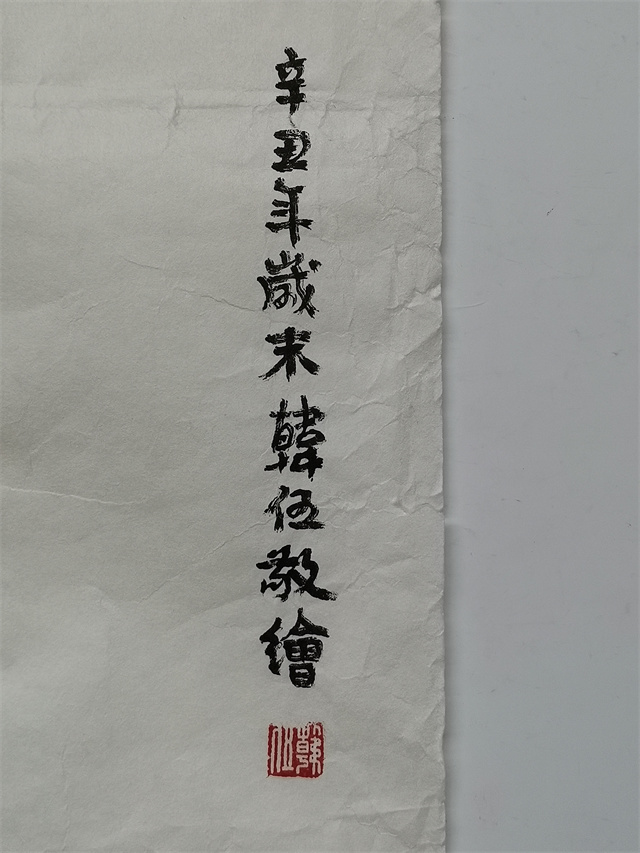 辛丑年歲末韓伍敬繪
韓伍